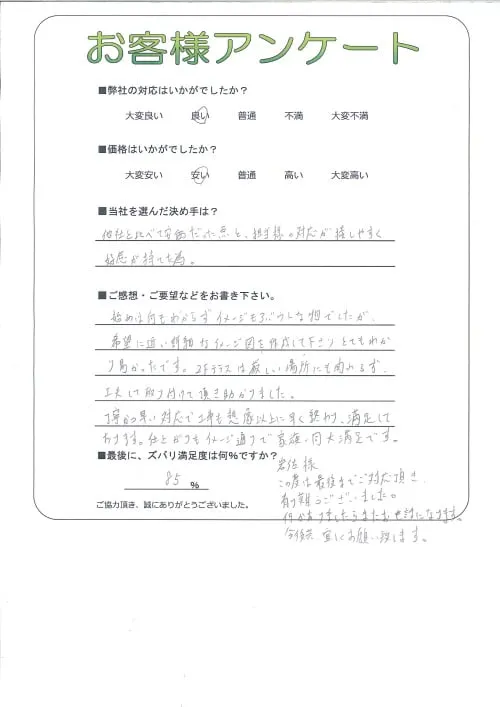 お客様アンケート
■弊社の対応はいかがでしたか？
大変良い 良い 普通 不満 大変不満
■価格はいかがでしたか？
大変安い 安い 普通 高い 大変高い
■当社を選んだ決め手は？
他社と比べて安価だった点と、担当様の対応が接しやすく
好感が持てた為。
■ご感想・ご要望などをお書き下さい。
始めは何もわからずイメージもあやふやな物でしたが、
希望に近い詳細なイメージ図を作成して下さりとてもわか
り易かったです。2Fテラスは厳しい場所にも関わらず、
工夫して取り付けて頂き助かりました。
丁寧かつ早い対応で工事も想像以上に早く終わり、満足して
おります。仕上がりもイメージ通りで家族一同大満足です。
■最後に、ズバリ満足度は何％ですか？
85 %
岩佐様
この度は最後までご対応頂き、
有り難うございました。
何かありましたらまたお世話になります。
今後共、宜しくお願い致します。
ご協力頂き、誠にありがとうございました。